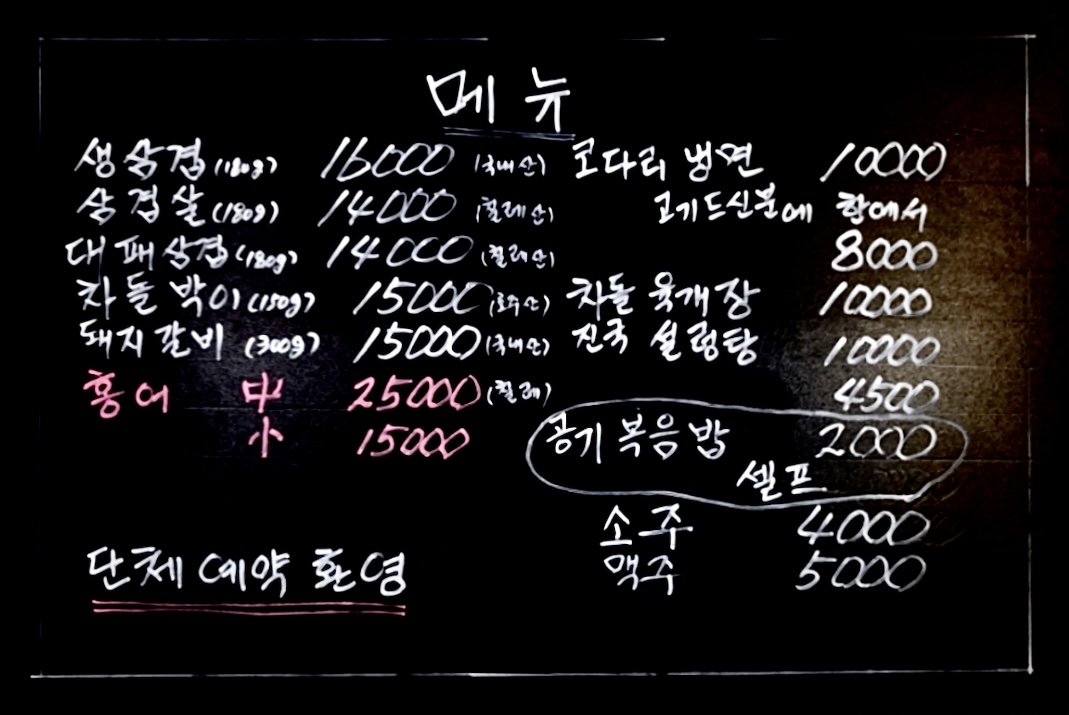 메뉴
생삼겹(180g) 16000 (국내산)
삼겹살(180g) 14000 (칠레산)
대패삼겹(180g) 14000 (칠레산)
차돌박이(150g) 15000 (호주산)
돼지갈비 (300g) 15000 (국내산)
홍어 中 25000 (칠레)
小 15000
단체예약 환영
코다리 냉면 10000
고기드신분에 한에서
8000
차돌 육개장 10000
진국 설렁탕 10000
4500
공기 볶음밥 2000
셀프
소주 4000
맥주 5000